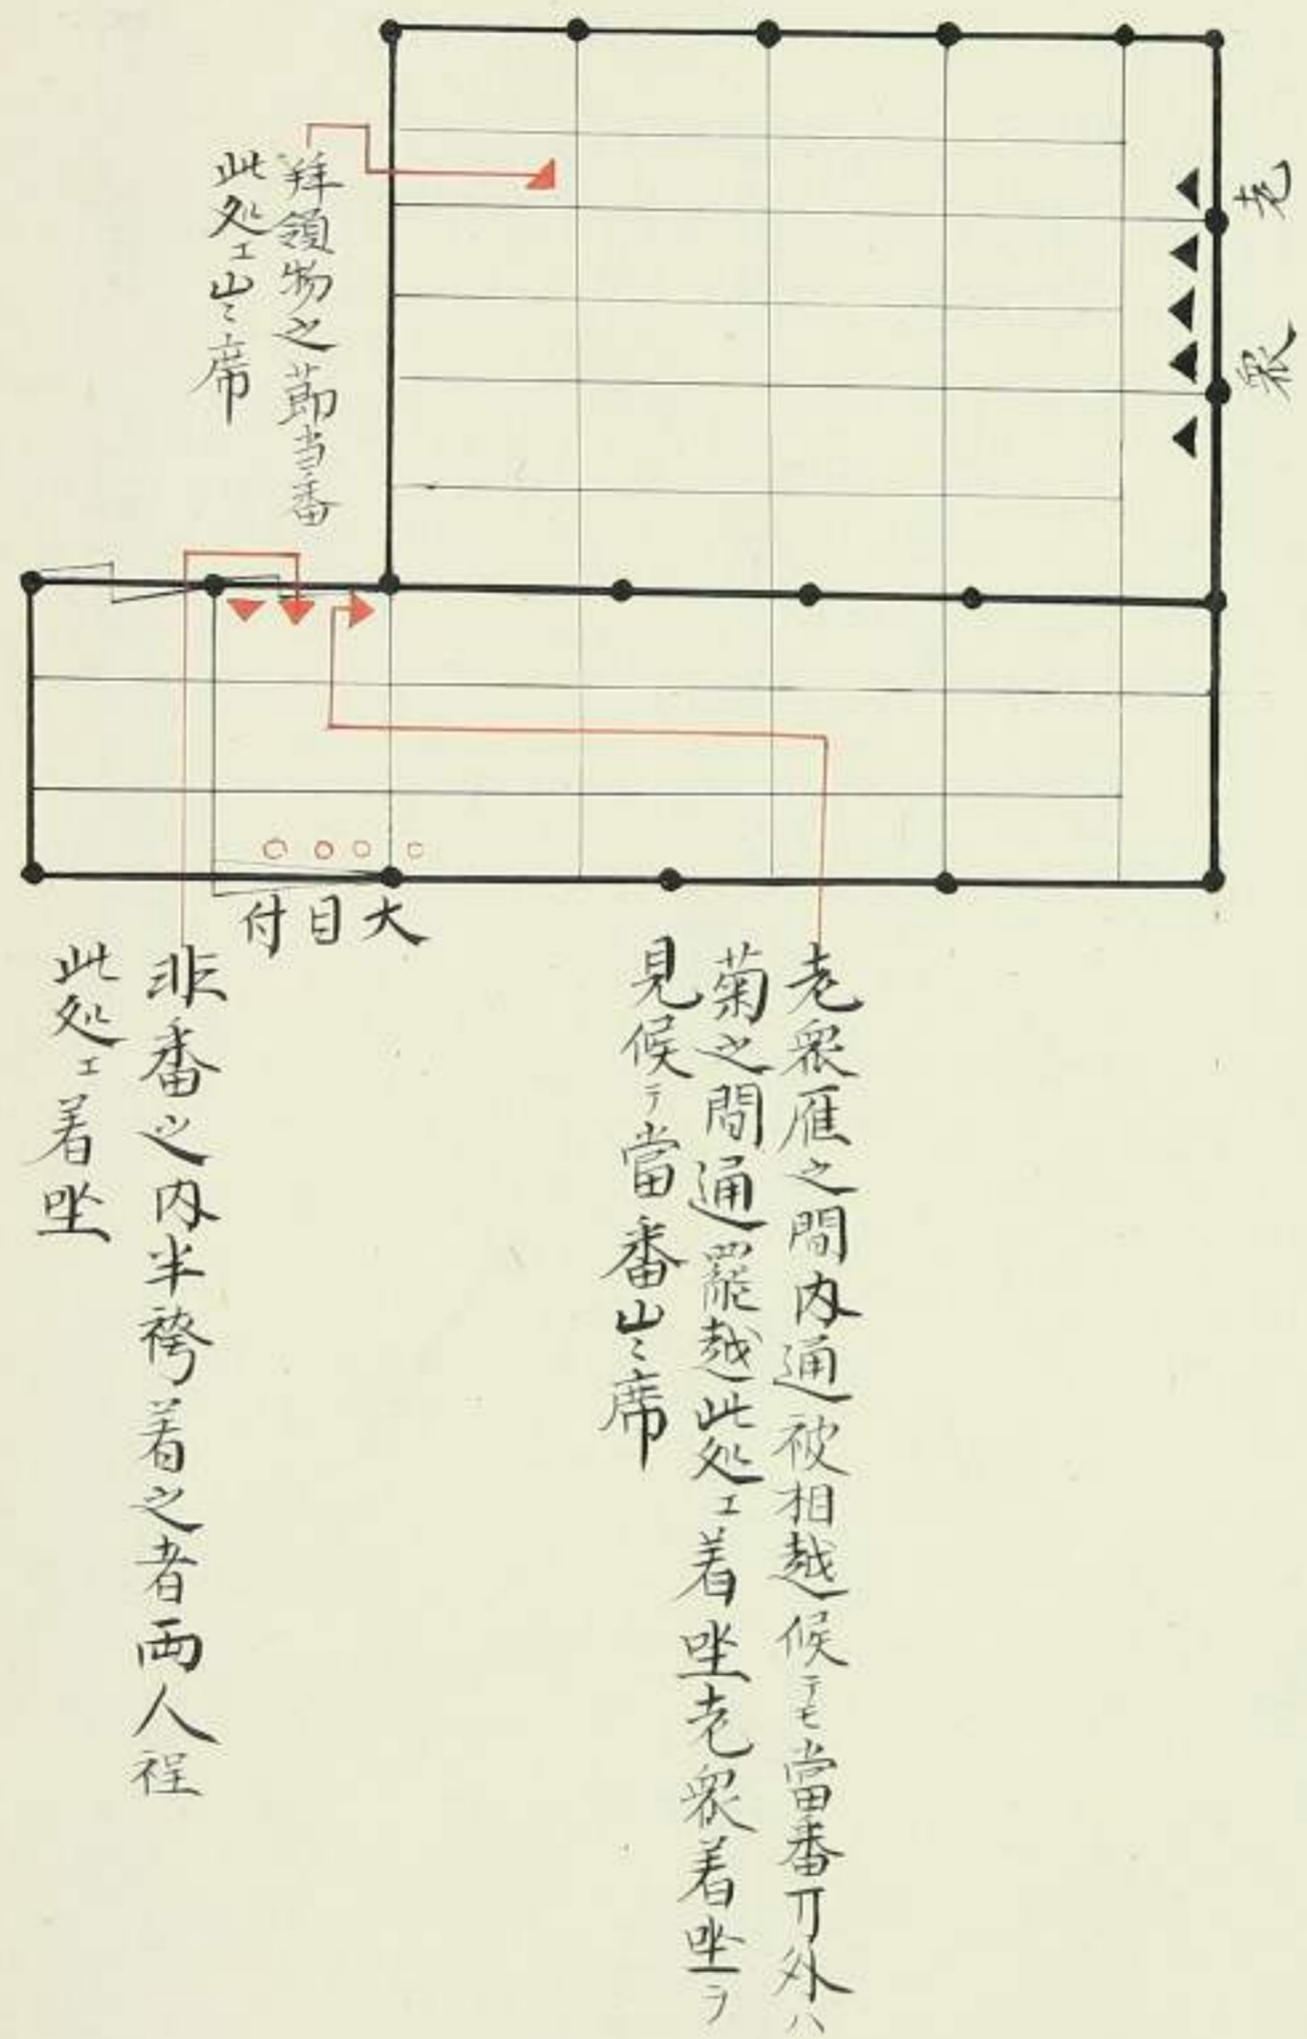 老衆
拝領物之節当番
此処エ出席
大目付
老衆雁之間内通被相越候テモ當番丌外ハ
菊之間通罷越此処エ着坐老衆着坐ヲ
見候テ當番出席
非番之内半袴着之者両人程
此処エ着坐